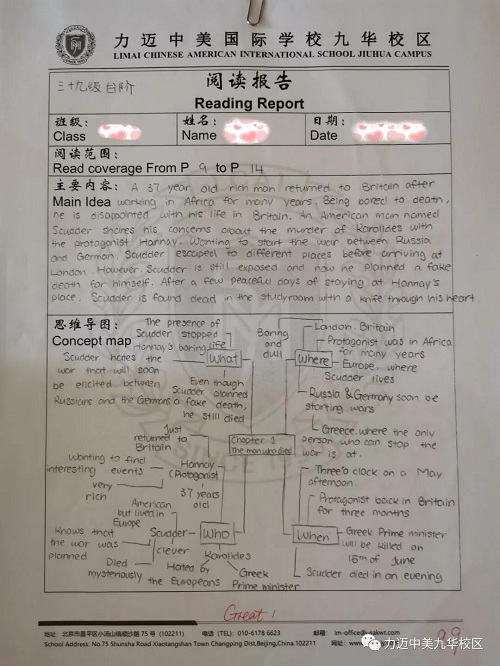 力迈中美国际学校九华校区
LIMAI CHINESE AMERICAN INTERNATIONAL SCHOOL JIUHUA CAMPUS
三十九级台阶
阅读报告
Reading Report
班级:
Class
姓名:
Name
日期:
Date
阅读范围:
Read coverage From P 9 to P 14
主要内容: A 37 year old rich man returned to Britain after
Main Idea working in Africa for many years. Being bored to death,
he is disappointed with his life in Britain. An American man named
Scudder shares his concerns about the murder of Karolides with
the protagonist Hannay. Wanting to start the war between Russia
and German, Scudder escaped to different places before arriving at
London. However, Scudder is still exposed and now he planned a fake
death for himself. After a few peaceful days of staying at Hannay's
place, Scudder is found dead in the studyroom with a knife through his heart
思维导图:
Concept map
The presence of
Scudder stopped
Hannay's boring life
What
Scudder hates the
war that will soon
be elicited between
Russians and the Germans
Even though
Scudder planned
a fake death,
he still died
Boring
and
dull
Where
London. Britain
Protagonist was in Africa
for many years
Europe. where
Scudder lives
Russia & Germany soon be
starting wars
Greece. where the only
person who can stop the
war is at.
Chapter 1
The man who died
Just
returned to
Britain
Wanting to find
interesting events
very
rich
Hannay
(Protagonist
37 years
old
Who
American
but lived in
Europe
Knows that
the war was
planned
Scudder
clever
Died
mysteriously
Karolides
Hated by
the Europeans
Greek
Prime minister
When
Three o clock on a May
afternoon.
Protagonist back in Britain
for three months
Greek Prime minister
will be killed on
15th of June
Scudder died in an evening
Great!
99
地址: 北京市昌平区小汤山镇顺沙路 75 号 (102211)
电话 (TEL): 010-6178 6623
邮箱
School Address: No.75 Shunsha Road Xiaotangshan Town Changping Dist,Beijing,China.102211
网址
力迈中美九华校区